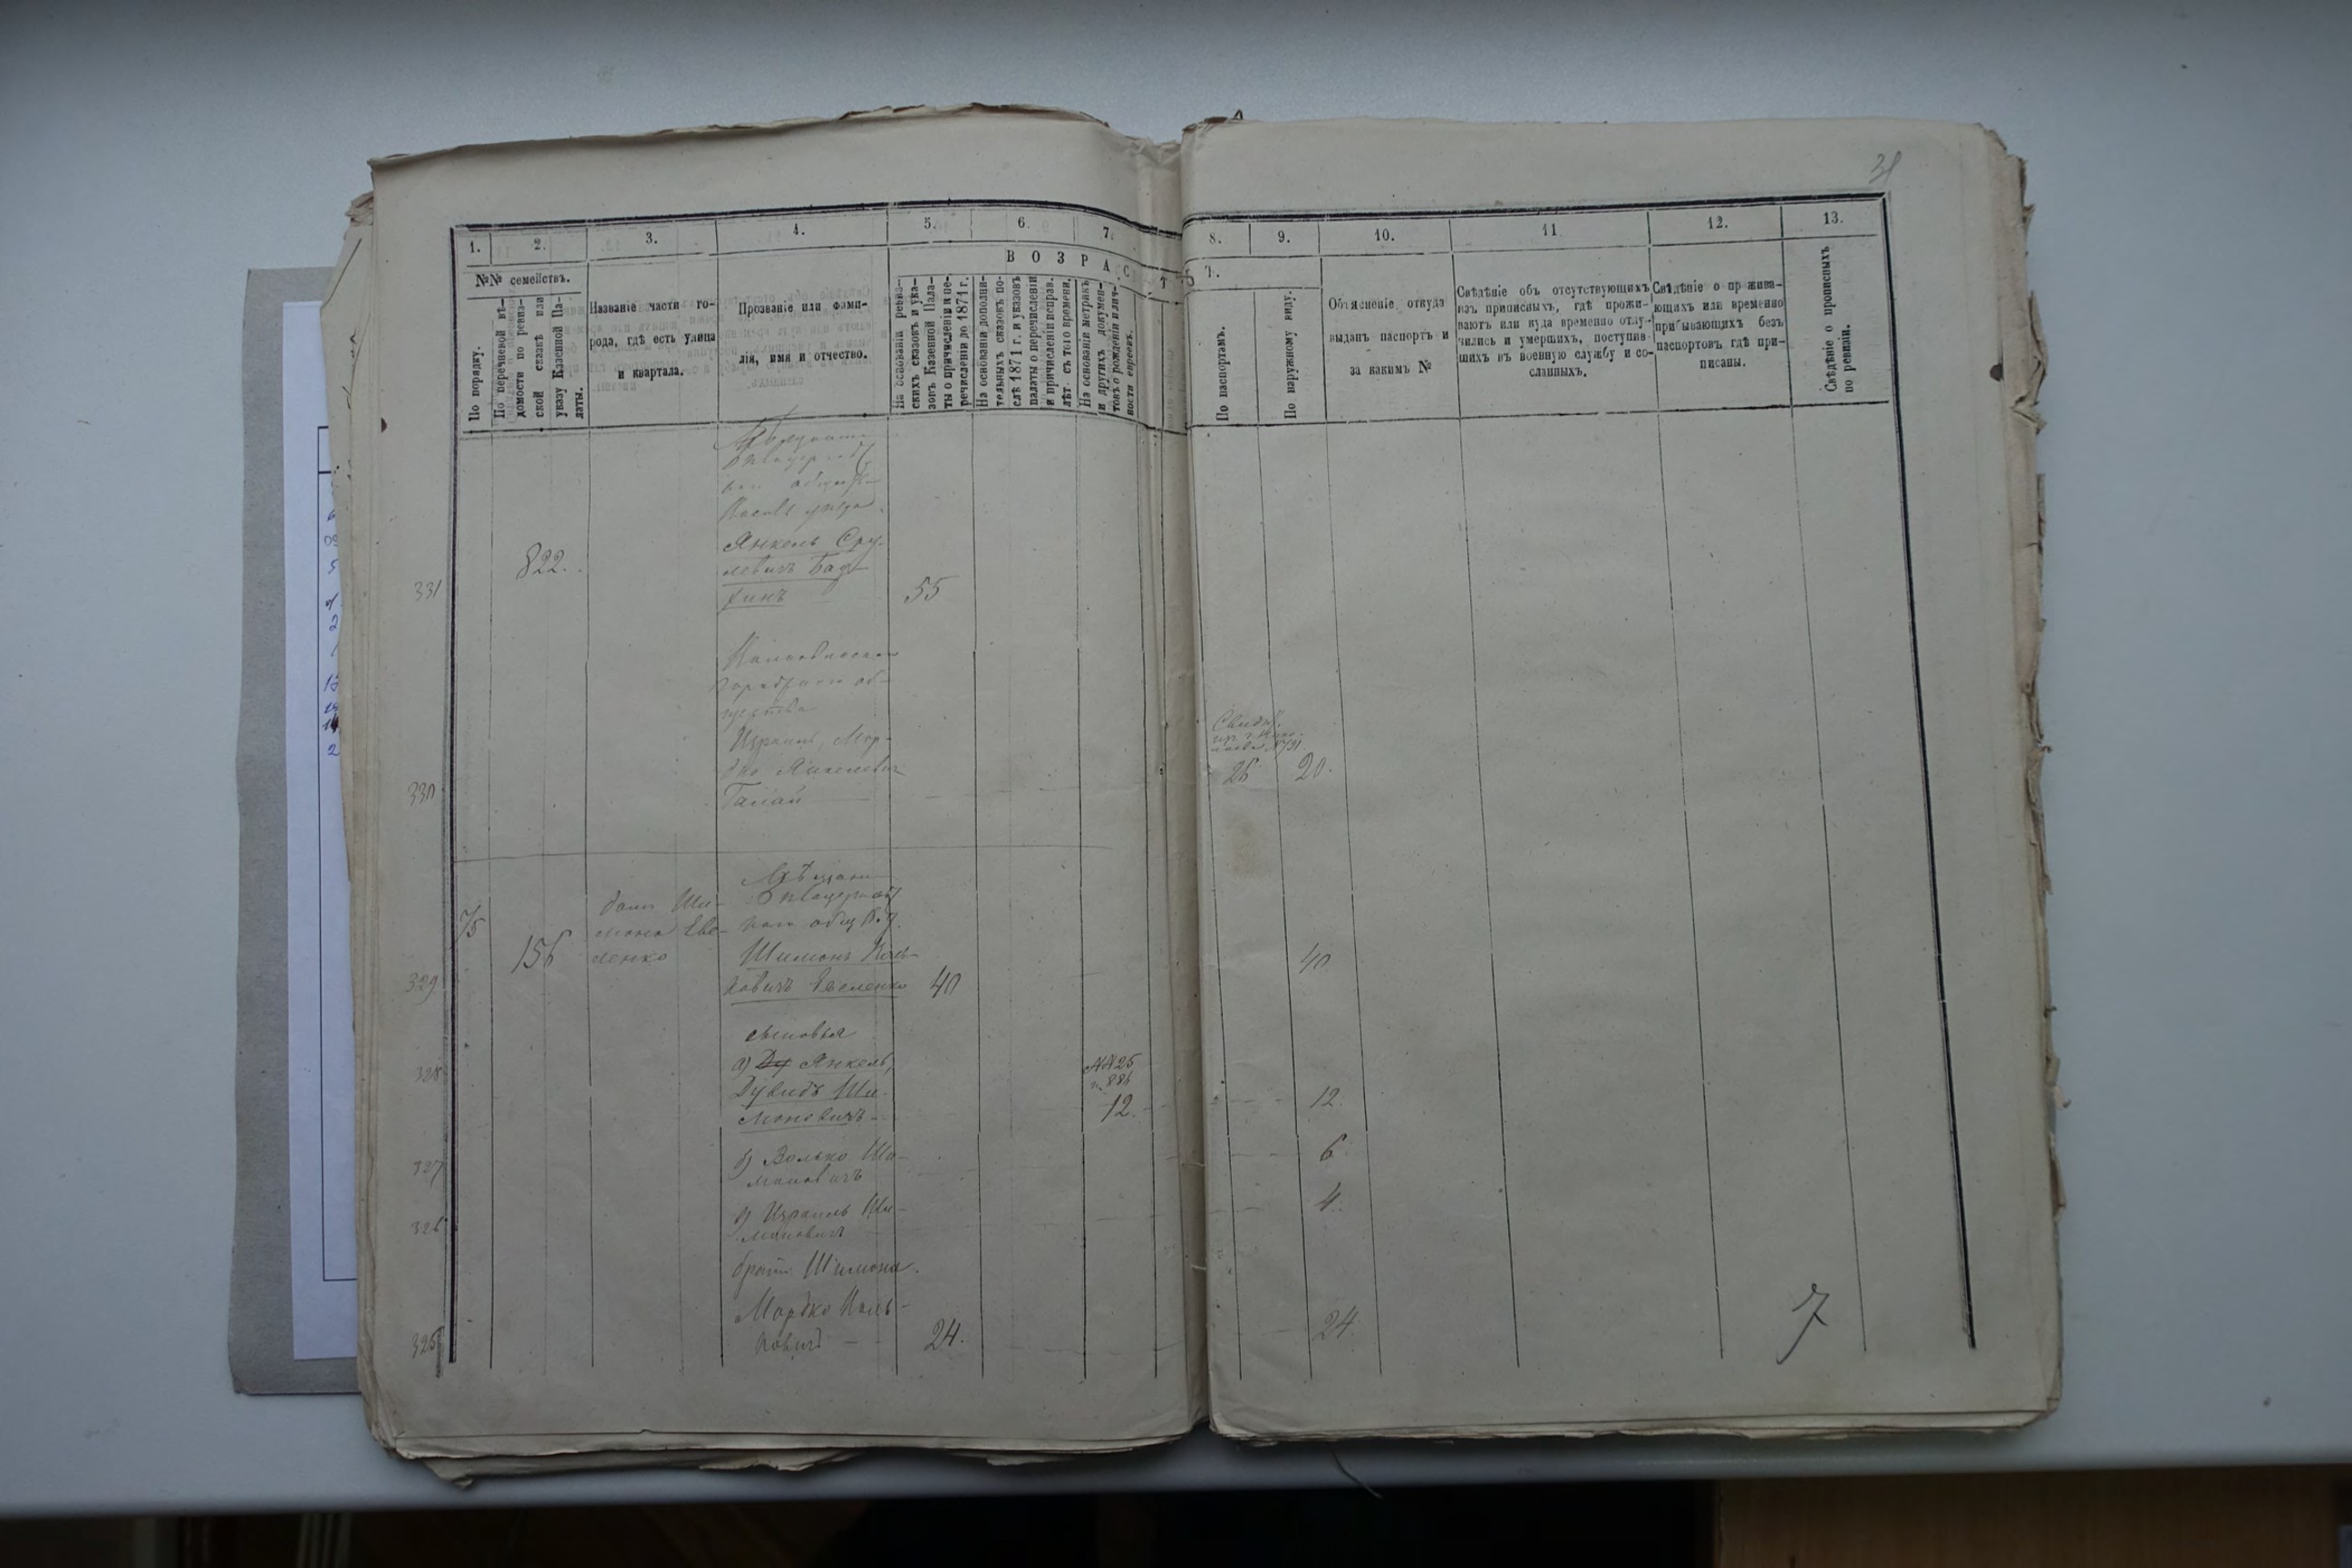 31
1. 2. 3. 4. 5. 6. 7. 8. 9. 10. 11 12. 13.
№№ семействъ.
По порядку.
По перечневой вѣ-
домости по ревиз-
ской сказкѣ или
указу Казенной Па-
латы.
Названіе части го-
рода, гдѣ есть улица
и квартала.
Прозваніе или фами-
лія, имя и отчество.
ВОЗРАСТЪ
Т.
На основаніи ревиз-
скихъ сказокъ и ука-
зовъ Казенной Пала-
ты о причисленіи и пе-
речисленіи до 1871 г.
На основаніи дополни-
тельныхъ сказокъ по-
слѣ 1871 г. и указовъ
палаты о перечисленіи
и причисленіи исправ.
лѣт. съ того времени.
На основаніи метрикъ
и другихъ докумен-
товъ о рожденіи и лич-
ности евреевъ.
По паспортамъ.
По наружному виду.
Объясненіе откуда
выданъ паспортъ и
за какимъ №
Свѣдѣніе объ отсутствующихъ
изъ приписныхъ, гдѣ прожи-
ваютъ или куда временно отлу-
чились и умершихъ, поступив-
шихъ въ военную службу и со-
сланныхъ.
Свѣдѣніе о прожива-
ющихъ или временно
прибывающихъ безъ
паспортовъ, гдѣ при-
писаны.
Свѣдѣніе о прописныхъ
по ревизіи.
822.
Янкель Сру-
левичъ
331
55
общества
Израиль, Мор-
дко Янкелевич
330
26 20.
75
156
домъ Ши-
мона Еве-
ленко
Мѣщане
Шимонъ Коль-
ковичъ Евеленко
329
40
40
сыновья
а) Ду Янкель,
Дувидъ Ши-
моновичъ
328
№№25
и 886
12.
12.
б) Волько Ши-
моновичъ
327
6.
в) Израиль Ши-
моновичъ
326
4.
братъ Шимона.
Мордко Коль-
ковичъ
325
24.
24.
7